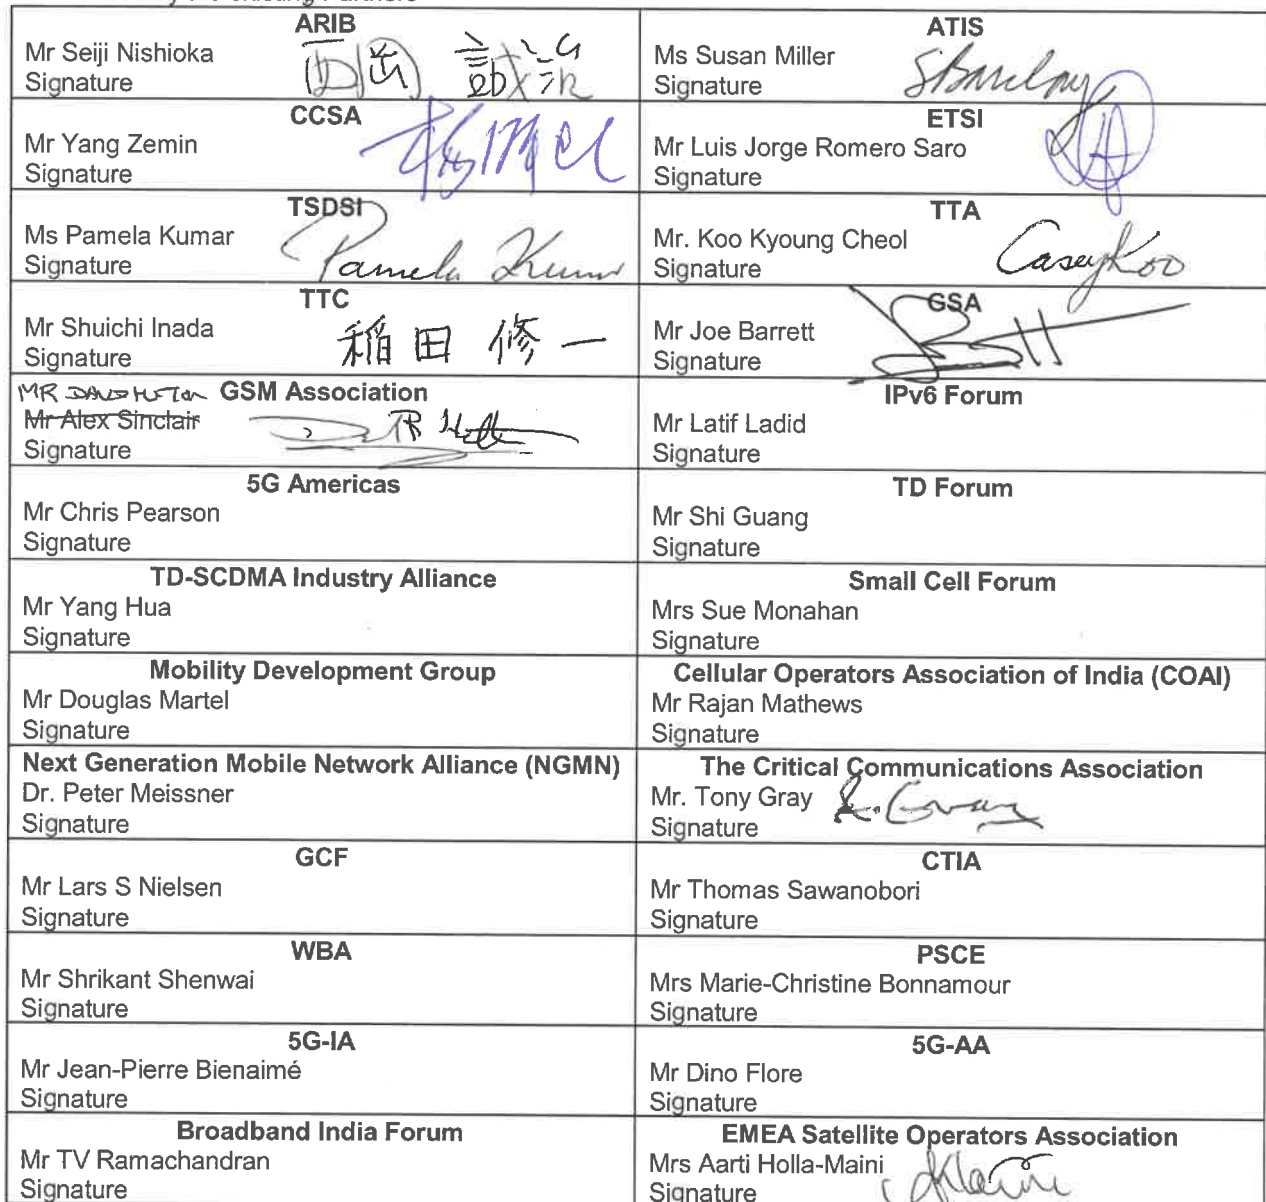 ARIB
Mr Seiji Nishioka
Signature
西岡 誠治
ATIS
Ms Susan Miller
Signature
CCSA
Mr Yang Zemin
Signature
ETSI
Mr Luis Jorge Romero Saro
Signature
TSDSI
Ms Pamela Kumar
Signature
Pamela Kumar
TTA
Mr. Koo Kyoung Cheol
Signature
Casey Koo
TTC
Mr Shuichi Inada
Signature
稲田 修一
GSA
Mr Joe Barrett
Signature
GSM Association
MR
Mr Alex Sinclair
Signature
IPv6 Forum
Mr Latif Ladid
Signature
5G Americas
Mr Chris Pearson
Signature
TD Forum
Mr Shi Guang
Signature
TD-SCDMA Industry Alliance
Mr Yang Hua
Signature
Small Cell Forum
Mrs Sue Monahan
Signature
Mobility Development Group
Mr Douglas Martel
Signature
Cellular Operators Association of India (COAI)
Mr Rajan Mathews
Signature
Next Generation Mobile Network Alliance (NGMN)
Dr. Peter Meissner
Signature
The Critical Communications Association
Mr. Tony Gray
Signature
GCF
Mr Lars S Nielsen
Signature
CTIA
Mr Thomas Sawanobori
Signature
WBA
Mr Shrikant Shenwai
Signature
PSCE
Mrs Marie-Christine Bonnamour
Signature
5G-IA
Mr Jean-Pierre Bienaimé
Signature
5G-AA
Mr Dino Flore
Signature
Broadband India Forum
Mr TV Ramachandran
Signature
EMEA Satellite Operators Association
Mrs Aarti Holla-Maini
Signature